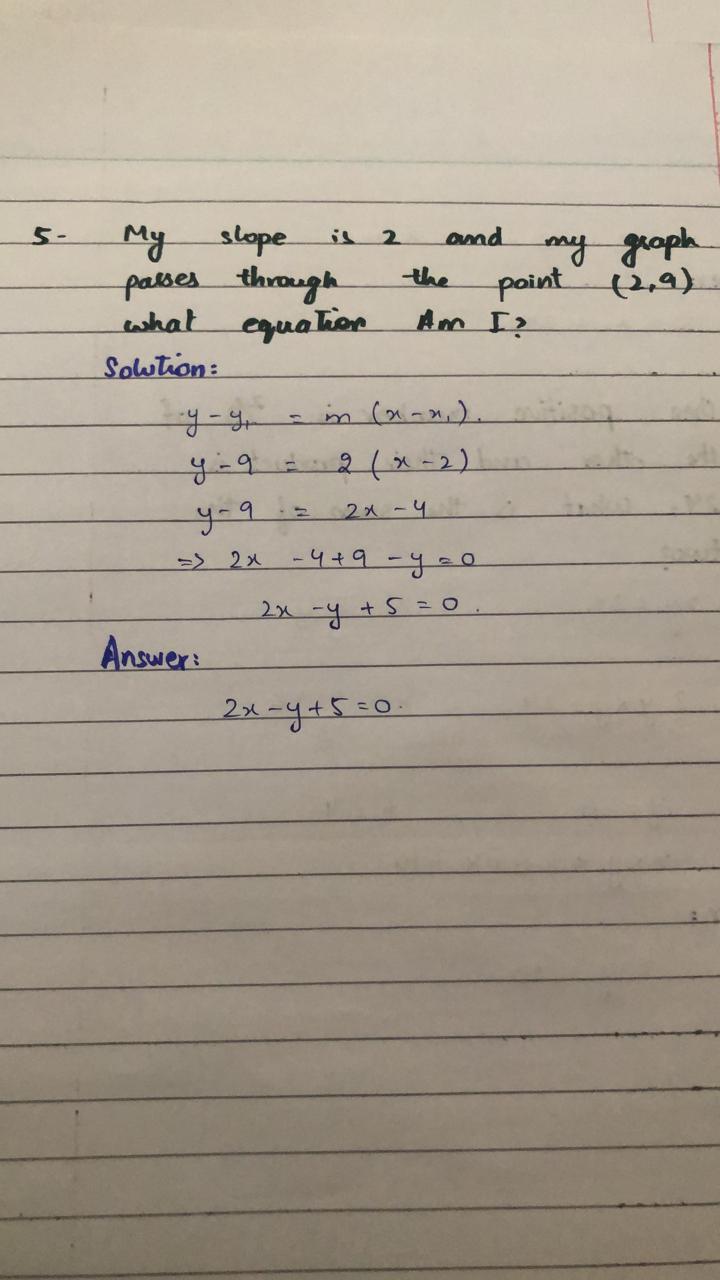 5- My slope is 2 and my graph
passes through the point (2,9)
what equation Am I?
Solution:
y-y₁ = m (x-x₁).
y-9 = 2 (x-2)
y-9 = 2x-4
=> 2x -4+9 -y=0
2x -y +5 = 0.
Answer:
2x-y+5=0.